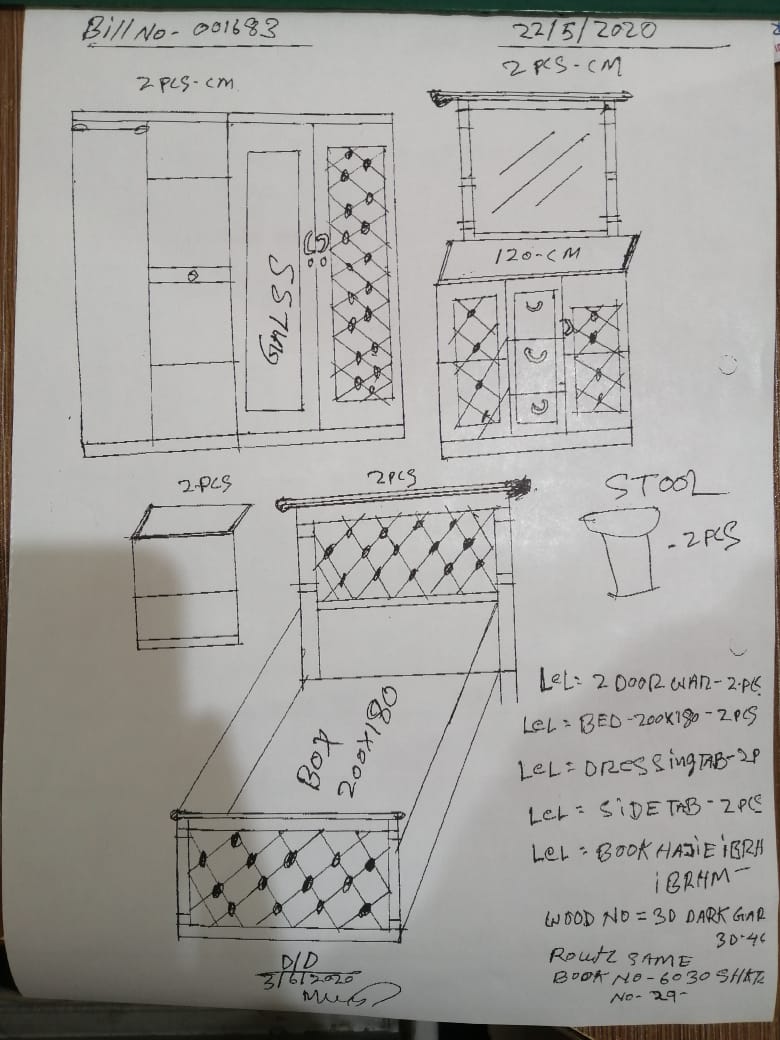 Bill No- 001683
22/5/2020
2 PCS-CM
2 PCS-CM
GALSS
120-CM
2-PCS
2PCS
STOOL
- 2 PCS
BOX
200X180
LeL= 2 DOOR WAR-2-PCS
LeL= BED-200X180-2PCS
LeL= DRESSingTAB-2P
LeL= SiDETAB-2PCS
LeL= BOOK HAJIE iBRH
iBRHM-
WOOD NO = 30 DARK GAR
30-46
SAME
BOOK NO-6030
NO-29-
D/D
3/6/2020